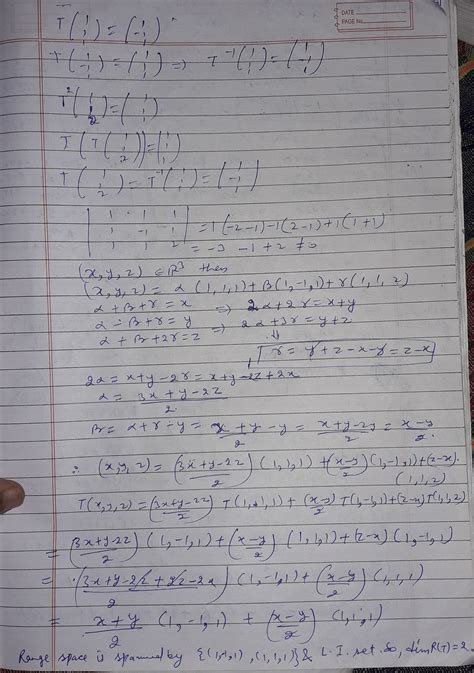 DATE
PAGE No.
T(1 1 1) = (1 -1 1)
T(1 -1 1) = (1 1 1) ⇒ T⁻¹(1 1 1) = (1 -1 1)
T²(1 1 2) = (1 1 1)
T(T(1 1 2)) = (1 1 1)
T(1 1 2) = T⁻¹(1 1 1) = (1 -1 1)
|1 1 1
1 -1 1
1 1 2| = 1(-2-1)-1(2-1)+1(1+1)
= -3 -1 +2 ≠ 0
(x,y,z) ∈ R³ then
(x,y,z) = α(1,1,1)+β(1,-1,1)+r(1,1,2)
α+β+r = x ⇒ 2α+2r = x+y
α-β+r = y ⇒ 2α+3r = y+z
α+β+2r = z
r = y+z-x-y = z-x
2α = x+y-2r = x+y-2z+2x
α = (3x+y-2z)/2
β = α+r-y = (x+y)/2 - y = (x+y-2y)/2 = (x-y)/2
∴ (x,y,z) = ((3x+y-2z)/2)(1,1,1)+((x-y)/2)(1,-1,1)+(z-x).
(1,1,2)
T(x,y,z) = ((3x+y-2z)/2) T(1,1,1) + ((x-y)/2) T(1,-1,1)+(z-x)T(1,1,2)
= ((3x+y-2z)/2)(1,-1,1)+((x-y)/2)(1,1,1)+(z-x)(1,-1,1)
= ((3x+y-2z+2z-2x)/2)(1,-1,1)+((x-y)/2)(1,1,1)
= (x+y)/2 (1,-1,1) + ((x-y)/2)(1,1,1)
Range space is spanned by {(1,-1,1),(1,1,1)} & L.I. set. So, dim R(T)=2.